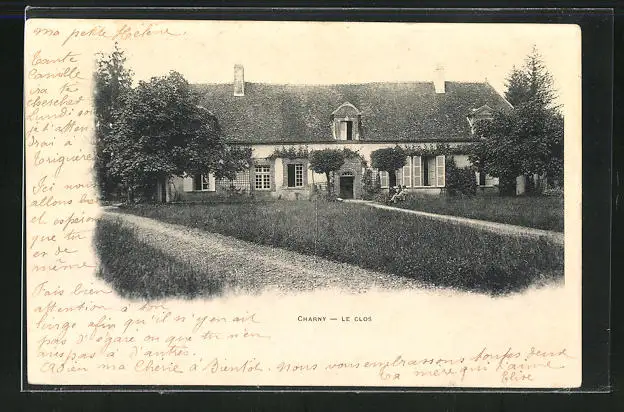 Ma petite Hélène.
Tante
Camille
ira te
chercher
Lundi soir
je t'atten
drai à
Ici nous
allons bien
et espérons
que tu
es de
même
Fais bien
attention à ton
linge afin qu'il n'y en ait
pas d'égaré ou que tu n'en
aies pas à d'autres.
Adieu ma Chérie à Bientôt. Nous vous embrassons toutes deux
Ta mère qui t'aime
Elise
CHARNY — LE CLOS